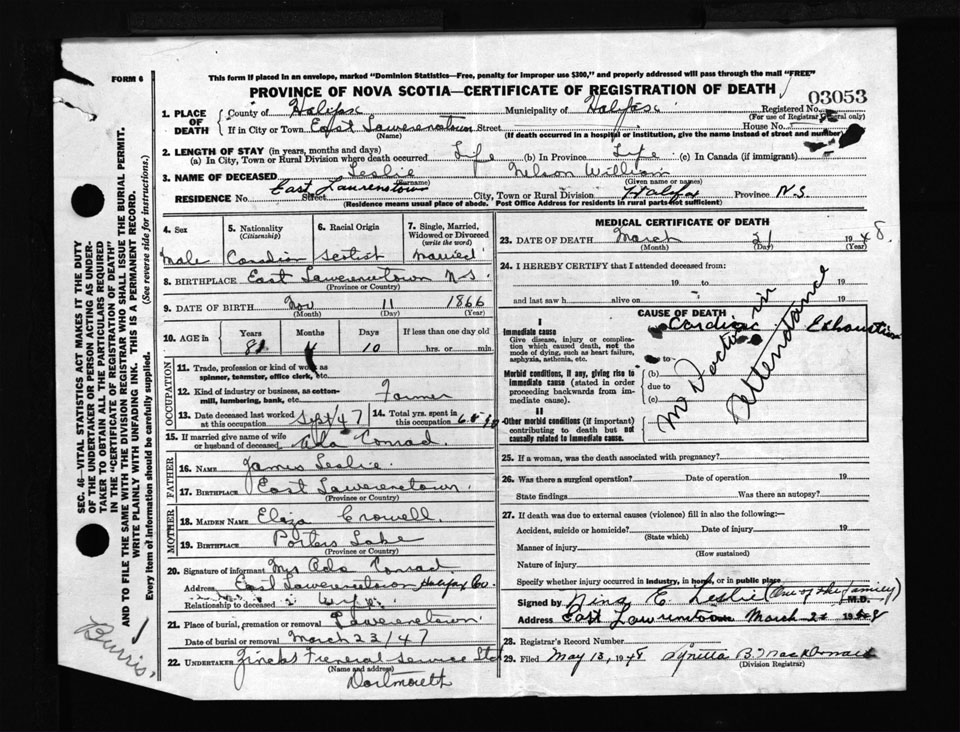 FORM 6
This form if placed in an envelope, marked "Dominion Statistics—Free, penalty for improper use $300," and properly addressed will pass through the mail "FREE"
PROVINCE OF NOVA SCOTIA—CERTIFICATE OF REGISTRATION OF DEATH
03053
1. PLACE OF DEATH
County of Halifax Municipality of Halifax Registered No.
(For use of Registrar General only)
If in City or Town East Lawerencetown Street House No.
(Name) (If death occurred in a hospital or institution, give the name instead of street and number)
2. LENGTH OF STAY (in years, months and days)
(a) In City, Town or Rural Division where death occurred Life (b) In Province Life (c) In Canada (if immigrant)
3. NAME OF DECEASED Leslie Nelson William
(Surname) (Given name or names)
RESIDENCE No. East Laurenstown Street City, Town or Rural Division Halifax Province N.S.
(Residence means usual place of abode. Post Office Address for residents in rural parts not sufficient)
4. Sex
Male
5. Nationality
(Citizenship)
Canadian
6. Racial Origin
Scotist
7. Single, Married, Widowed or Divorced
(write the word)
Married
8. BIRTHPLACE East Lawerencetown N.S.
(Province or Country)
9. DATE OF BIRTH Nov 11 1866
(Month) (Day) (Year)
10. AGE in Years Months Days If less than one day old
81 10 hrs. or min.
OCCUPATION
11. Trade, profession or kind of work as spinner, teamster, office clerk, etc.
12. Kind of industry or business, as cotton-mill, lumbering, bank, etc. Farmer
13. Date deceased last worked at this occupation Sept/47
14. Total yrs. spent in this occupation
15. If married give name of wife or husband of deceased Ada Conrad
FATHER
16. NAME James Leslie
17. BIRTHPLACE East Lawerencetown
(Province or Country)
MOTHER
18. MAIDEN NAME Eliza Crowell
19. BIRTHPLACE Porters Lake
(Province or Country)
20. Signature of informant Mrs Ada Conrad
Address East Lawerencetown Halifax Co.
Relationship to deceased wife
21. Place of burial, cremation or removal Lawerencetown
Date of burial or removal March 23/47
22. UNDERTAKER Zincks Freneral Service Ltd
(Name and address)
Dartmouth
MEDICAL CERTIFICATE OF DEATH
23. DATE OF DEATH March 21 1948
(Month) (Day) (Year)
24. I HEREBY CERTIFY that I attended deceased from:
19 to 19
and last saw h alive on 19
CAUSE OF DEATH
I
Immediate cause
Give disease, injury or complication which caused death, not the mode of dying, such as heart failure, asphyxia, asthenia, etc.
Cardiac Exhaustion
due to
Morbid conditions, if any, giving rise to immediate cause (stated in order proceeding backwards from immediate cause).
(b)
due to
(c)
II
Other morbid conditions (if important) contributing to death but not causally related to immediate cause.
No Doctor in Attendance
25. If a woman, was the death associated with pregnancy?
26. Was there a surgical operation? Date of operation 19
State findings Was there an autopsy?
27. If death was due to external causes (violence) fill in also the following:—
Accident, suicide or homicide? Date of injury 19
(State which)
Manner of injury
(How sustained)
Nature of injury
Specify whether injury occurred in industry, in home, or in public place
Signed by Nina E. Leslie (One of the family) M.D.
Address East March 19
28. Registrar's Record Number
29. Filed May 13, 1948 B. MacDonald
(Division Registrar)
SEC. 46—VITAL STATISTICS ACT MAKES IT THE DUTY
OF THE UNDERTAKER OR PERSON ACTING AS UNDER-
TAKER TO OBTAIN ALL THE PARTICULARS REQUIRED
IN THE "CERTIFICATE OF REGISTRATION OF DEATH"
AND TO FILE THE SAME WITH THE DIVISION REGISTRAR WHO SHALL ISSUE THE BURIAL PERMIT.
WRITE PLAINLY WITH UNFADING INK. THIS IS A PERMANENT RECORD.
Every item of Information should be carefully supplied. (See reverse side for instructions.)
Burris